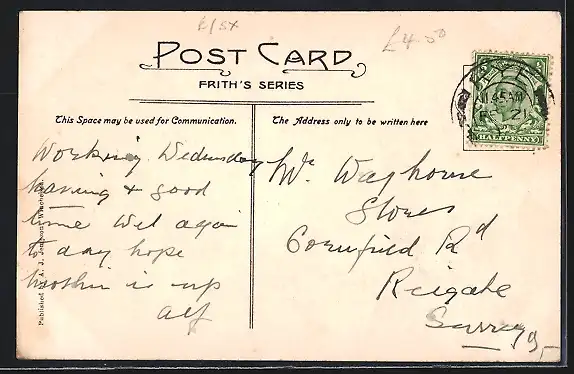 £4.50
POST CARD
FRITH'S SERIES
This Space may be used for Communication.
The Address only to be written here
Working Wednesday
having & good
time Wet again
to day hope
is up
alf
Mr Waghouse
Stores
Cornfield Rd
Reigate
Surrey
HALFPENNY
Published by A. J.